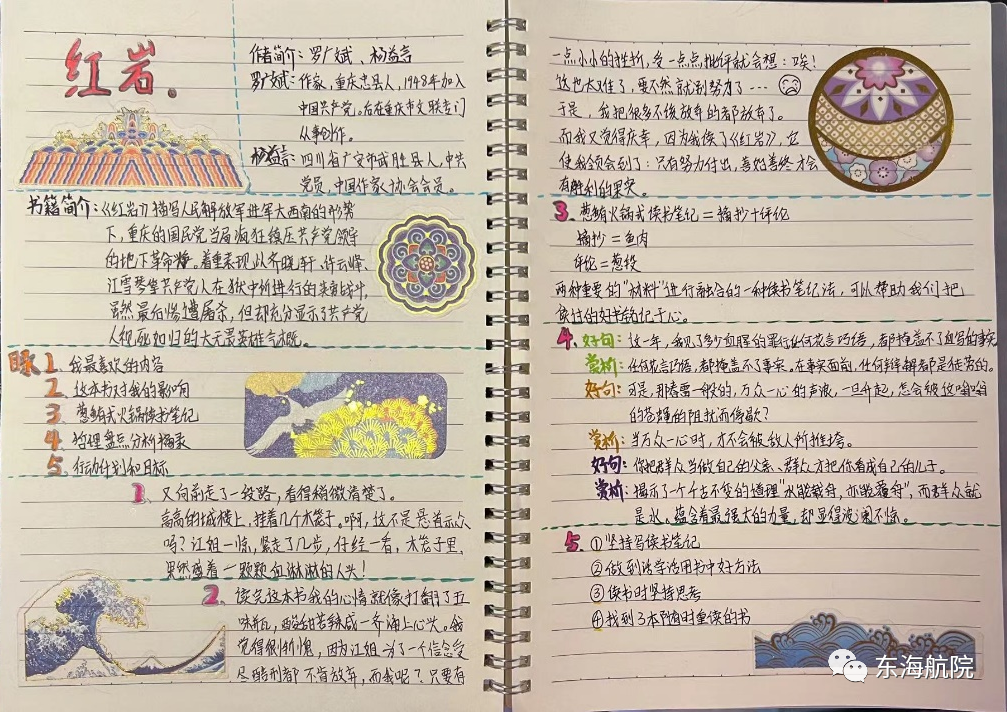 红岩.
作者简介：罗广斌、杨益言
罗广斌：作家，重庆忠县人，1948年加入
中国共产党。后在重庆市文联专门
从事创作。
杨益言：四川省广安市武胜县人，中共
党员，中国作家协会会员。
书籍简介：《红岩》描写人民解放军进军大西南的形势
下，重庆的国民党当局疯狂镇压共产党领导
的地下革命 。着重表现以齐晓轩、许云峰、
江雪琴等共产党人在狱中所进行的英勇战斗，
虽然最后惨遭屠杀，但却充分显示了共产党
人视死如归的大无畏英雄气概。
1、我最喜欢的内容
2、这本书对我的影响
3、葱鲔火锅式读书笔记
4、物理盘点分析摘录
5、行动计划和目标
1、又向前走了一段路，看得稍微清楚了。
高高的城楼上，挂着几个木笼子。啊，这不是悬首示众
吗？江姐一惊，紧走了几步，仔细一看，木笼子里，
果然盛着一颗颗血淋淋的人头！
2、读完这本书我的心情就像打翻了五
味瓶，酸甜苦辣咸一齐涌上心头。我
觉得很惭愧，因为江姐为了一个信念受
尽酷刑都不肯放弃，而我呢？只要有
一点小小的挫折，多一点点批评就会想：唉！
这也太难了，要不然就别努力了…
于是，我把很多不该放弃的都放弃了。
而我又觉得庆幸，因为我读了《红岩》，它
使我领会到了：只有努力付出，善始善终才会
有胜利的果实。
3、葱鲔火锅式读书笔记＝摘抄＋评论
摘抄＝鱼肉
评论＝葱段
两种重要的“材料”进行融合的一种读书笔记法，可以帮助我们把
读过的好书铭记于心。
4、好句：这一年，我见了多少血腥的罪行任何花言巧语，都掩盖不了血写的事实
赏析：任何花言巧语，都掩盖不了事实。在事实面前，任何辩解都是徒劳的。
好句：可是，那春雷一般的，万众一心的声浪，一旦升起，怎会被这嗡嗡
的苍蝇的阻扰而停歇？
赏析：当万众一心时，才不会被敌人所推垮。
好句：你把群众当做自己的父亲、群众才把你看成自己的儿子。
赏析：揭示了一个千古不变的道理“水能载舟，亦能覆舟”，而群众就
是水。蕴含着最强大的力量，却显得波澜不惊。
5、①坚持写读书笔记
②做到活学活用书中好方法
③读书时坚持思考
④找到3本随时重读的书
东海航院